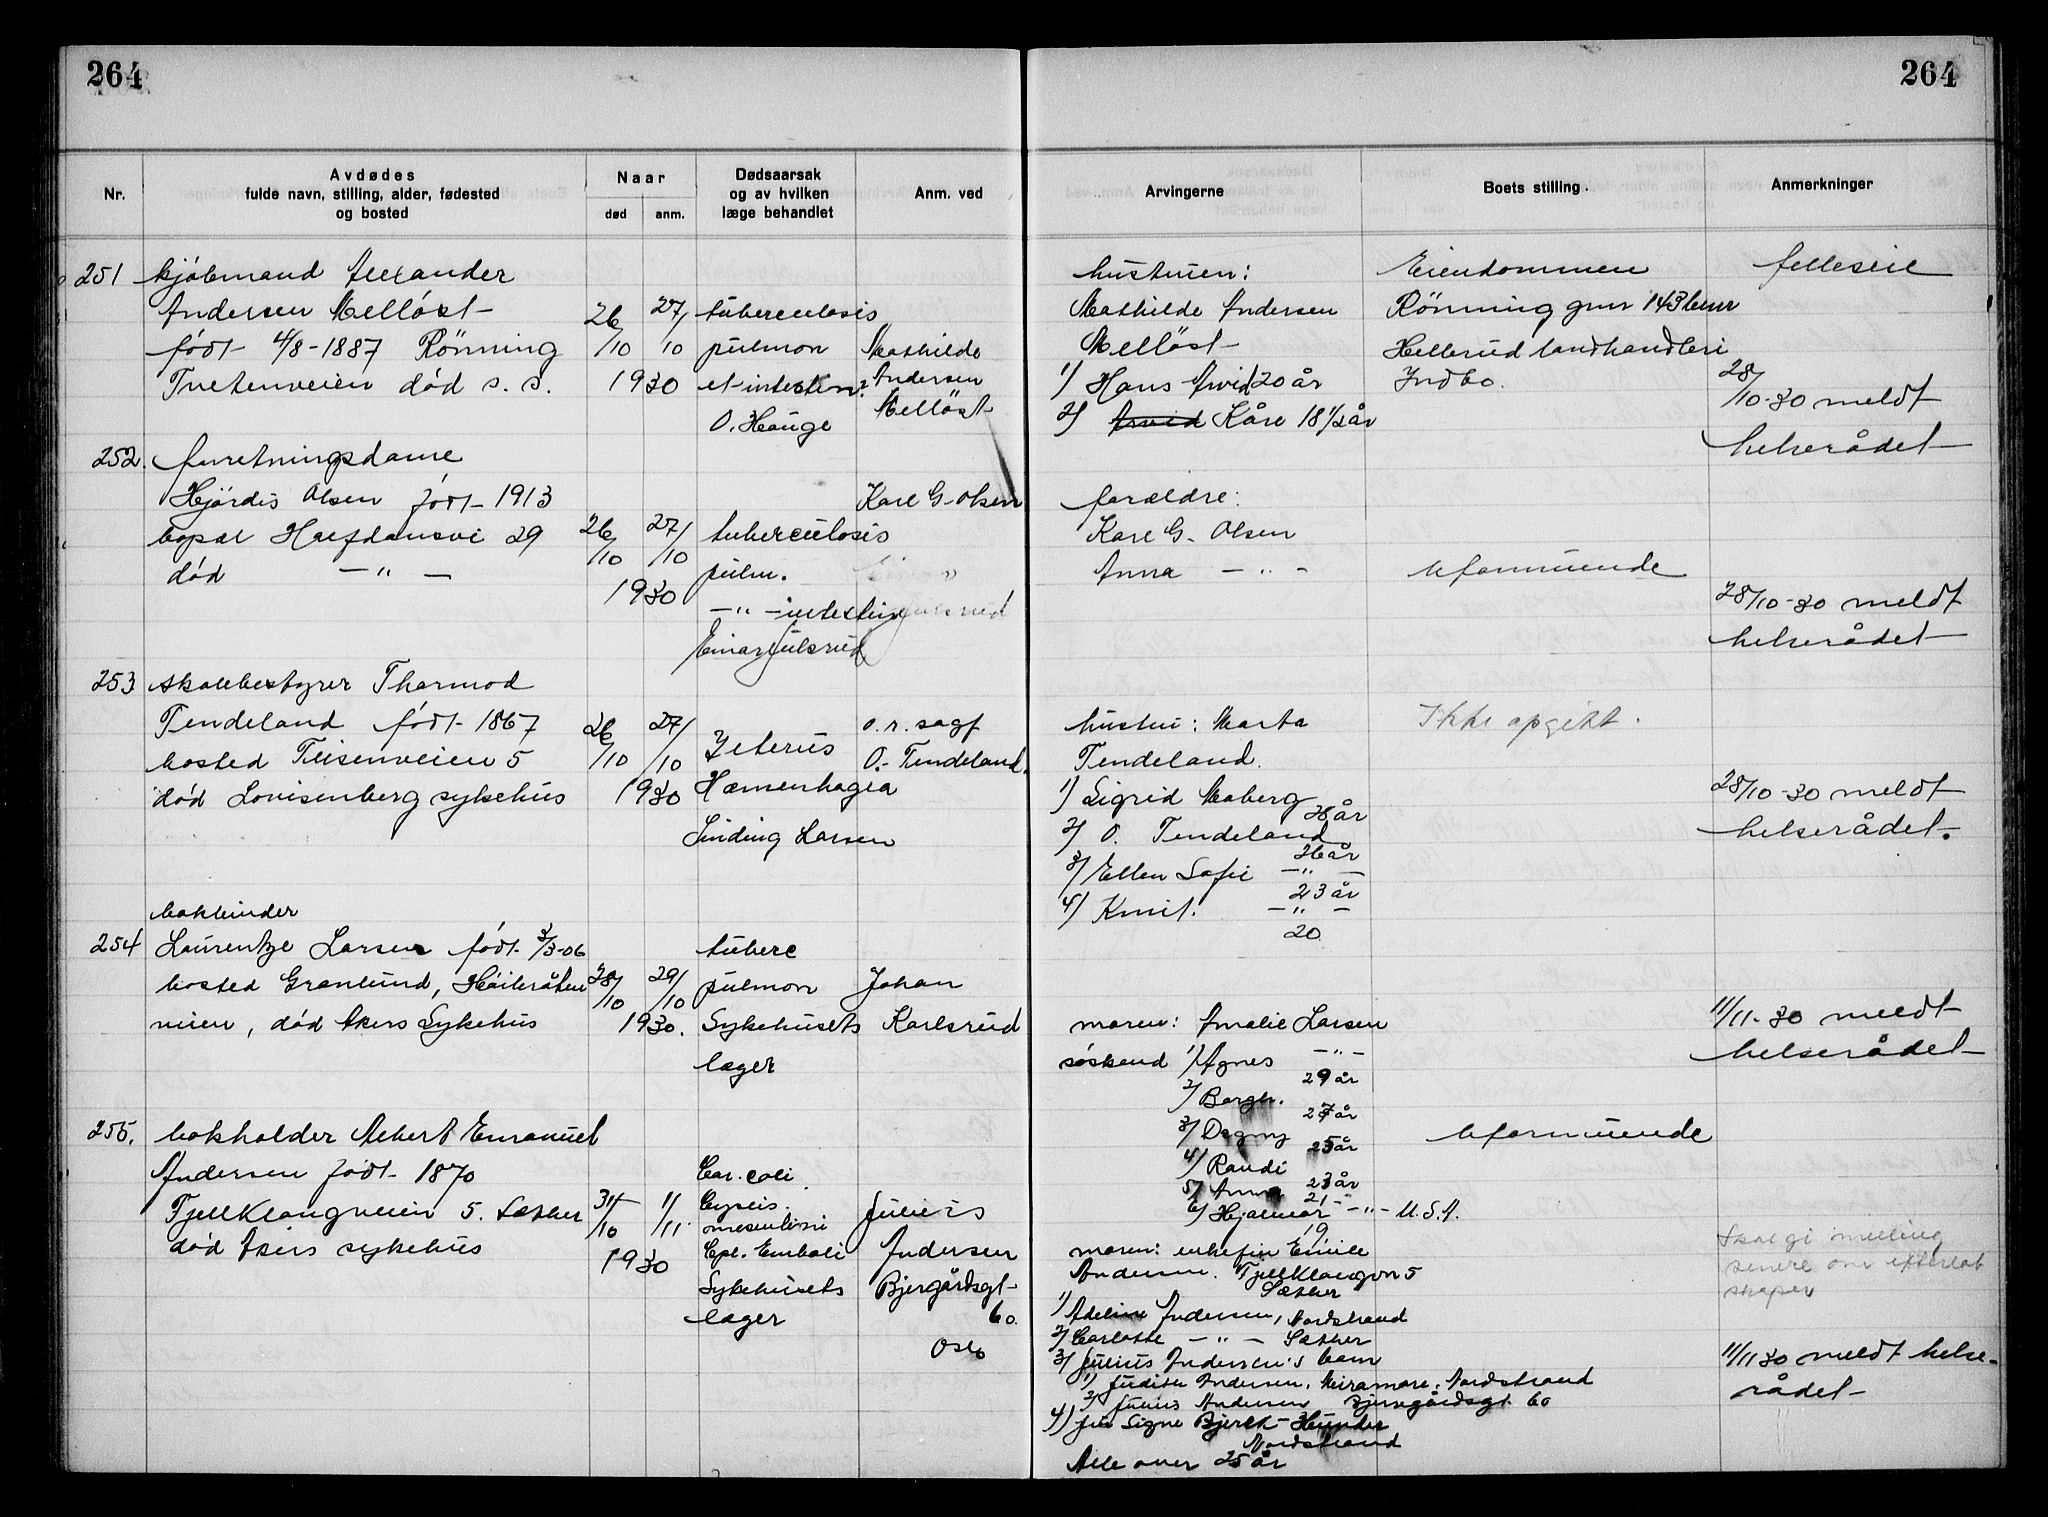 264
264
Nr.
Avdødes
fulde navn, stilling, alder, fødested
og bosted
Naar
død
anm.
Dødsaarsak
og av hvilken
læge behandlet
Anm. ved
Arvingerne
Boets stilling.
Anmerkninger
251
kjøbmand Alexander
Andersen Melløst
født 4/8-1887 Rönning
Tvetenveien død s. s.
26/10
27/10
1930
tuberculosis
pulmon
et intestin.
O. Hauge
Mathilde
Andersen
Melløst
hustruen:
Mathilde Andersen
Melløst
1) Hans Arvid 20 år
2) Arvid Kåre 18 1/2 år
Eiendommen
Rönning gnr 143 bnr
Hellerud landhandleri
Indbo.
felleseie
28/10-30 meldt
helserådet
252.
forretningsdame
Hjördis Olsen født 1913
bopæl Halfdansvei 29
død — " —
26/10
27/10
1930
tuberculosis
pulm.
— " — intestin
Einar Julsrud
Karl G. Olsen
foreldre:
Karl G. Olsen
Anna — " —
uformuende
28/10-30 meldt
helserådet
253
skolebestyrer Thormod
Tendeland født 1867
bosted Teisenveien 5
død Lovisenberg sykehus
26/10
27/10
1930
Icterus
Hæmorrhagia
Sinding Larsen
o.r. sagf
O. Tendeland.
hustru: Marta
Tendeland.
1) Sigrid Moberg
28 år
2) O. Tendeland
26 år
3) Ellen Sofie — " —
23 år
4) Knut. — " —
20
Ikke opgitt.
28/10-30 meldt
helserådet.
254
bokbinder
Laurentze Larsen født 3/3-06
bosted Granlund, Høibråten
veien, død Akers Sykehus
28/10
29/10
1930.
tuberc
pulmon
Sykehusets
læger
Johan
Karlsrud
moren: Amalie Larsen
söskend 1) Agnes — " —
29 år
2) Borgh.
27 år
3) Dagny
25 år
4) Randi
23 år
5) Anna
21 "
6) Hjalmar — " — U.S.A.
19
11/11-30 meldt
helserådet
255.
bokholder Albert Emanuel
Andersen født 1870
Fjellklangveien 5. Sæther
død Akers sykehus
31/10
1/11
1930
Car. coli
Sykehusets
læger
Julius
Andersen
Bjergårdsgt
60.
Oslo
uformuende
moren: enkefru Emilie
Andersen. Fjellklangvn 5
Sæther
1) Adeline Andersen, Nordstrand
2) Carlotte — " — Sæther
3) Julius Andersen's barn
1) Judith Andersen, Miramare, Nordstrand
2) Julius Andersen Bjerregårdsgt. 60
4) fru Signe Bjerck-Hunder
Nordstrand
Alle over 25 år
Skal gi melling
senere om efterlat
skaper
11/11 30 meldt helse-
rådet